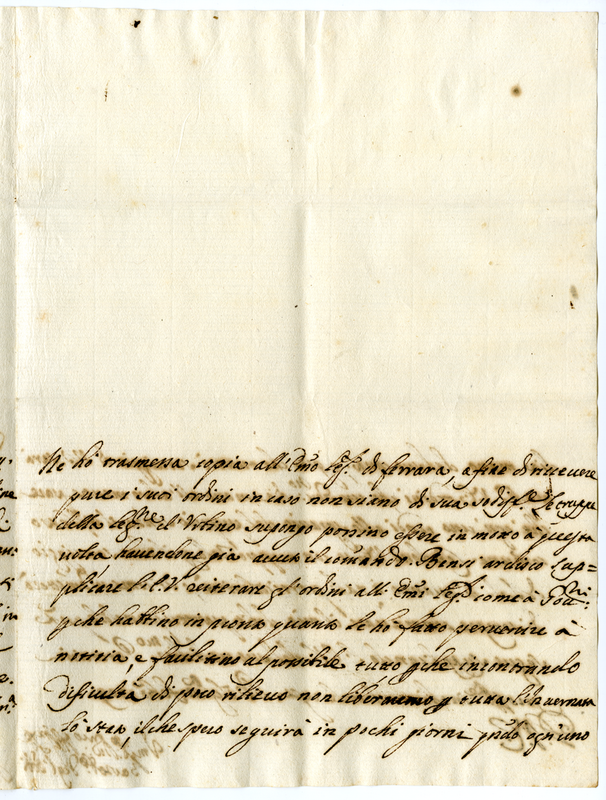 Ne ho trasmessa copia all' Emo Leg.to di Ferrara, a fine di ricevere
pure i suoi ordini in caso non siano di sua sodisf.ne Le truppe
della Leg.ne d' Urbino supongo possino essere in moto à questa
volta havendone già avuto il comando. Bensi ardisco sup=
plicare l' E. V. reiterare gl' ordini all' Emi Leg.ti come à Gov.ri
p che hattino in pronto quanto le ho fatto pervenire à
notitia, e facilitino al possibile tutto, p che incontrando
dificultà di poco rilievo non libereremo p tutta l' Invernata
lo stato, il che spero seguirà in pochi giorni qndo ogn' uno